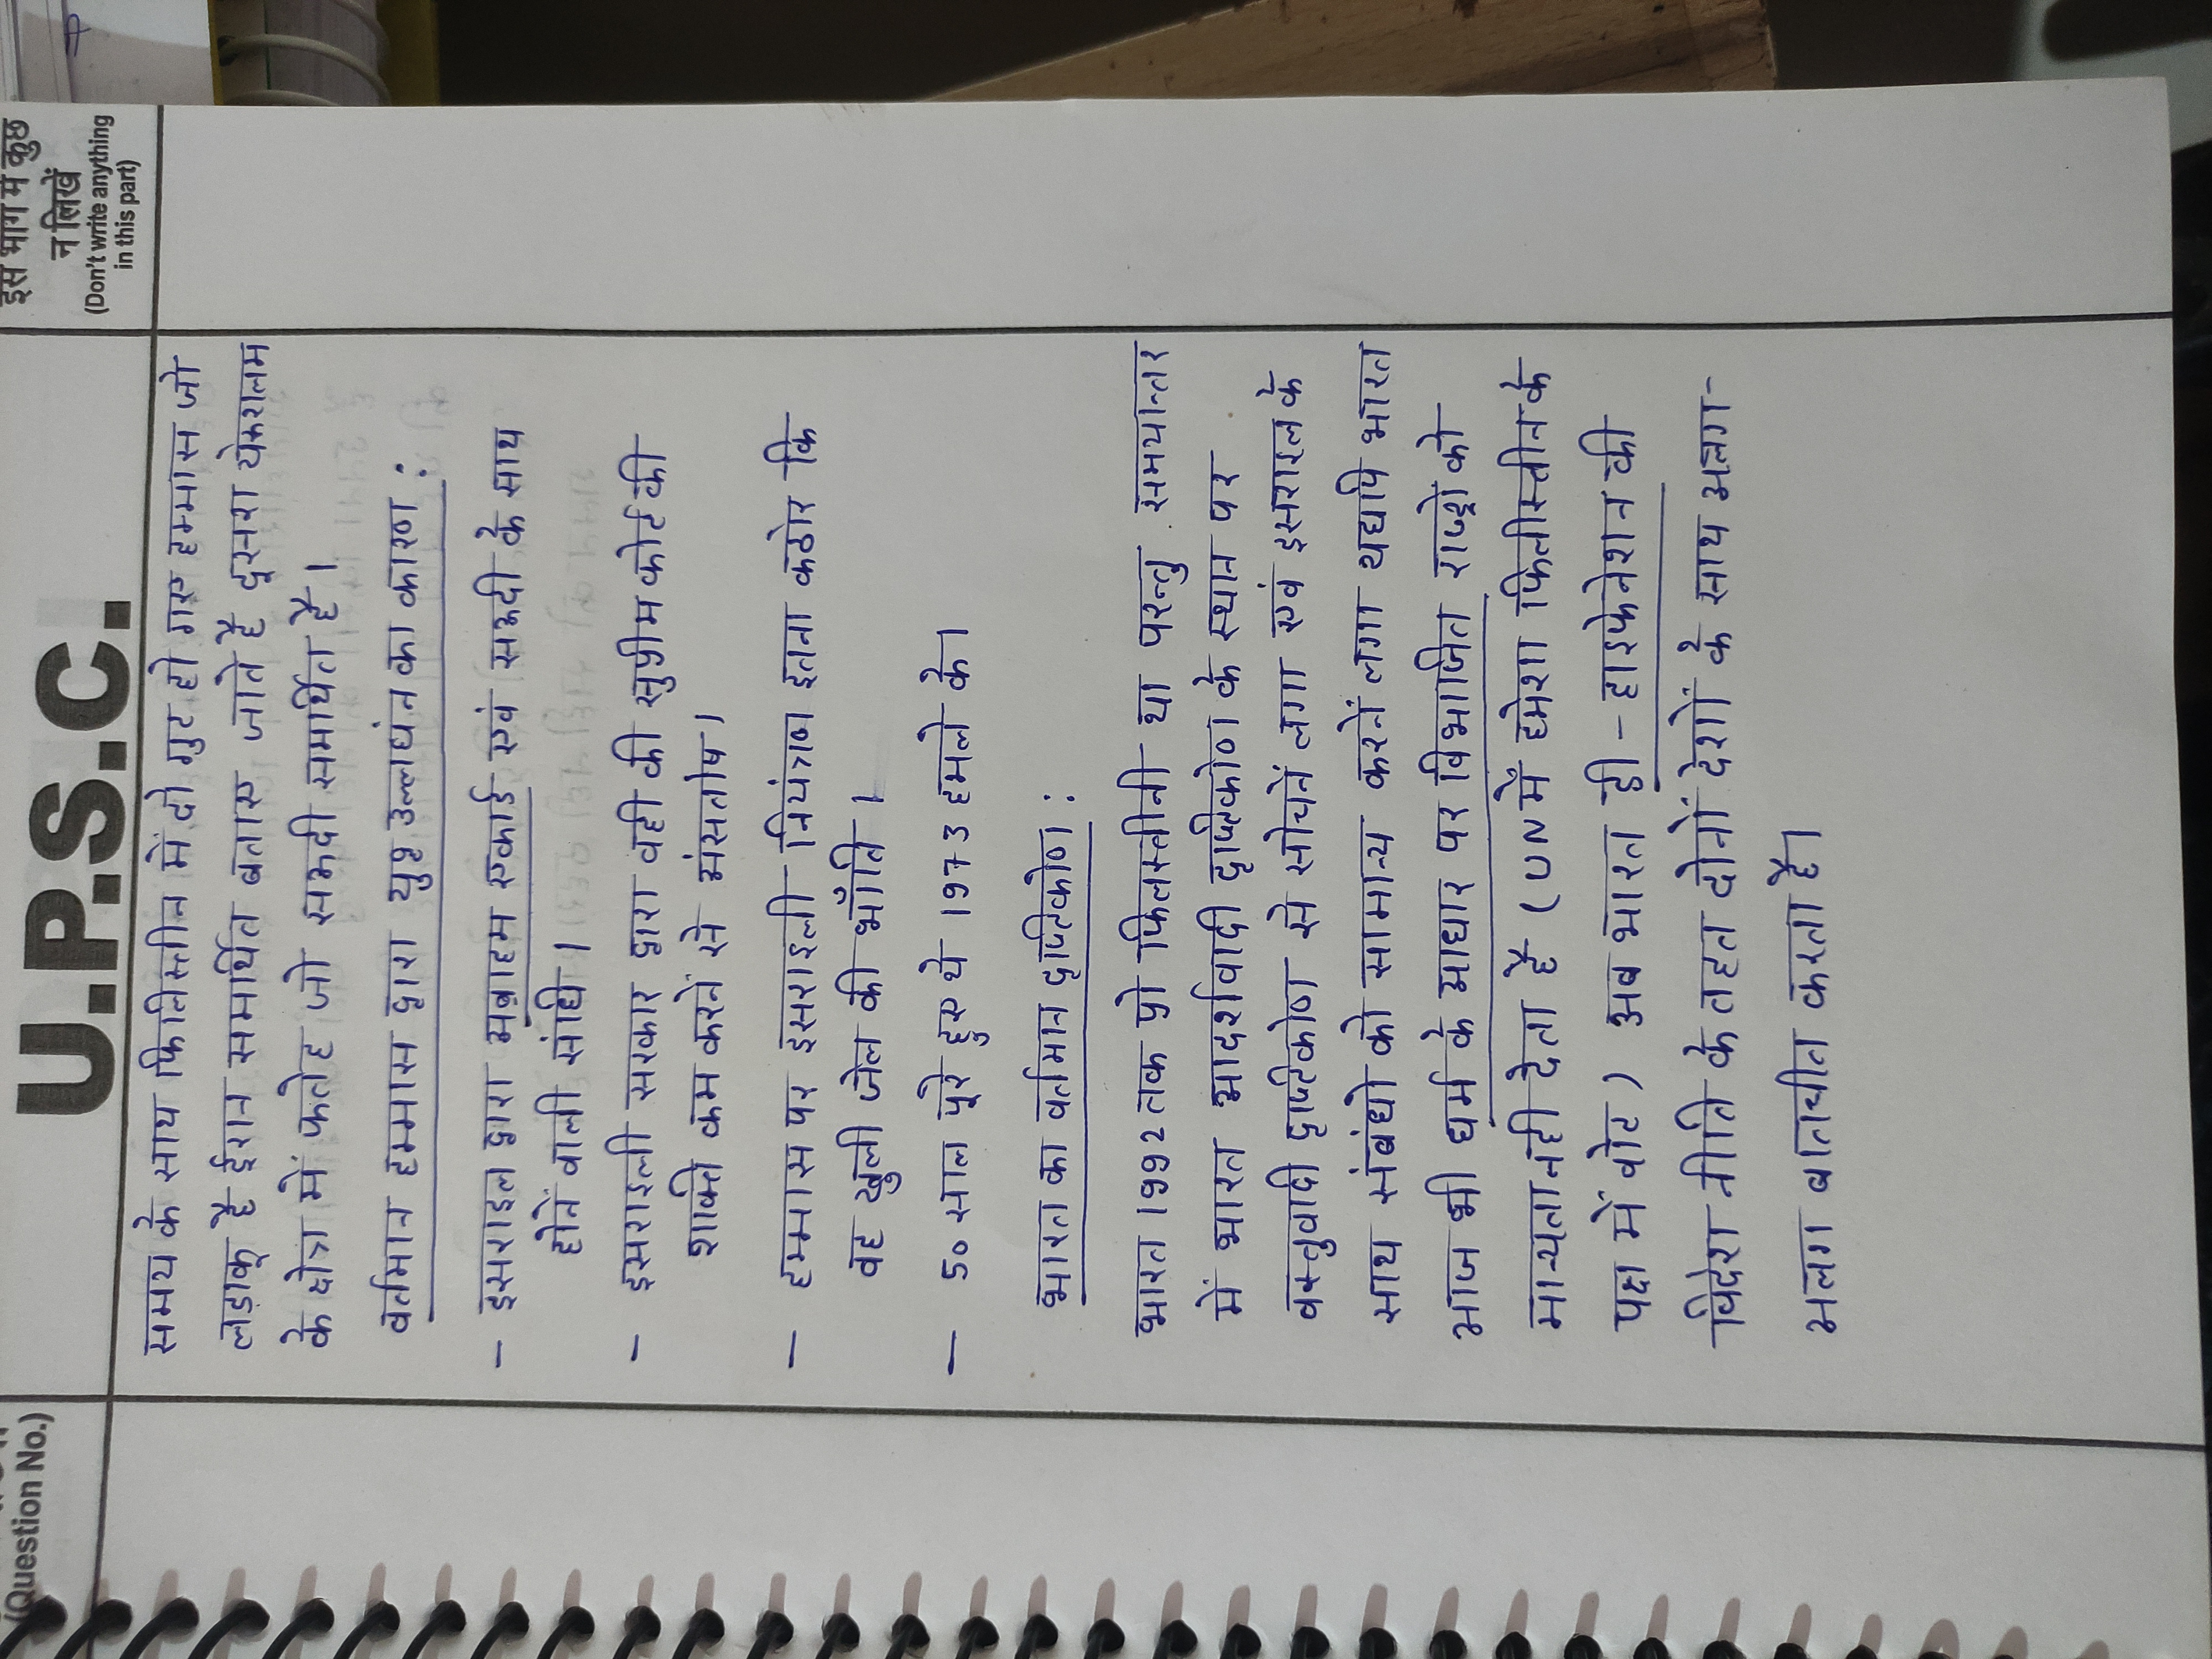 (Question No.)
U.P.S.C.
इस भाग में कुछ
न लिखें
(Don't write anything
in this part)
समय के साथ फिलिस्तीन में दो गुट हो गए हम्मास जो
लडाकू है ईरान समर्थित बताए जाते है दूसरा येरूशलम
के क्षेत्र में फतेह जो सऊदी समर्थित है।
वर्तमान हम्मास द्वारा युद्ध उल्लघंन का कारण :
- इसराइल द्वारा अब्राहम एकार्ड एवं सऊदी के साथ
होनें वाली संधि।
- इसराइली सरकार द्वारा वही की सुप्रीम कोर्ट की
शक्ति कम करनें से असंतोष।
- हम्मास पर इसराइली नियंत्रण इतना कठोर कि
वह खुली जेल की भाँति।
- 50 साल पूरे हुए थे 1973 हमले के।
भारत का वर्तमान दृष्टिकोण :
भारत 1992 तक प्रो फिलस्तीनी था परन्तु समयान्तर
में भारत आदर्शवादी दृष्टिकोण के स्थान पर
वस्तुवादी दृष्टिकोण से सोचनें लगा एवं इसराइल के
साथ संबंधो को सामान्य करनें लगा यद्यपि भारत
आज भी धर्म के आधार पर विभाजित राष्ट्रों को
मान्यता नही देता है (UN में हमेशा फिलीस्तीन के
पक्ष में वोट) अब भारत डी-हाइफेनेशन की
विदेश नीति के तहत दोनों देशों के साथ अलग-
अलग बातचीत करता है।